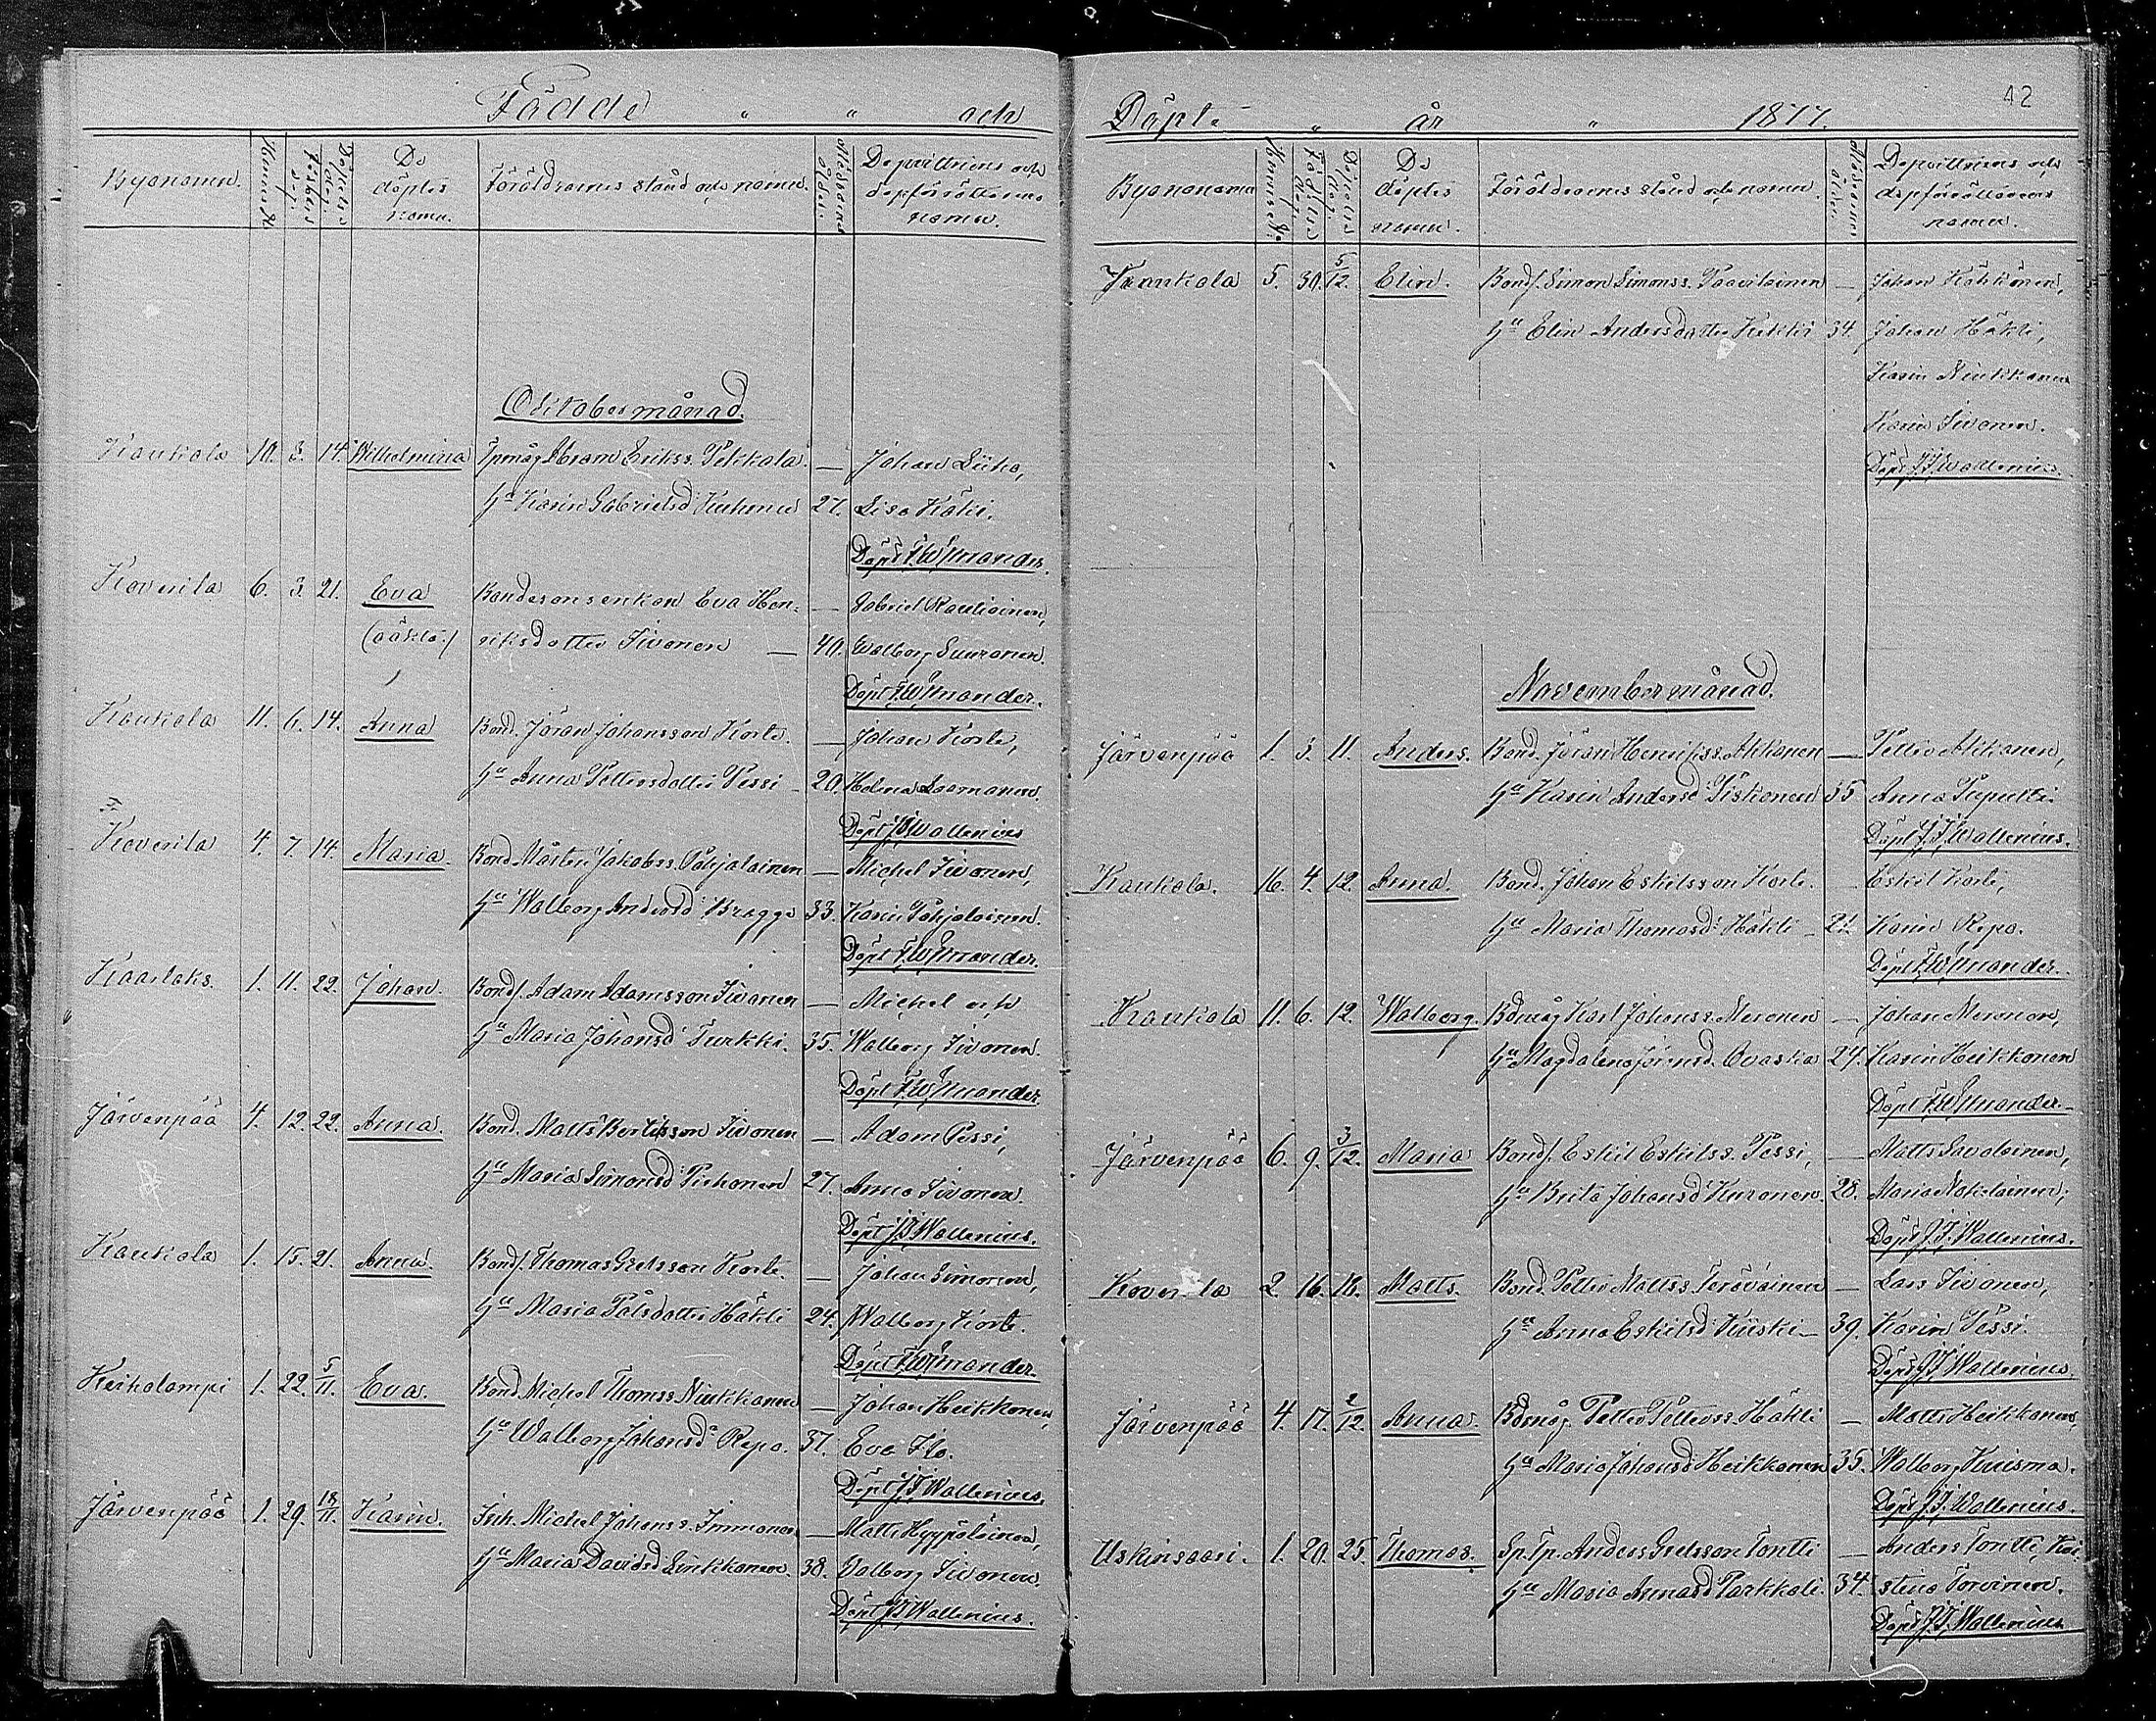 Födde " " och
Byanamn. Hemm: № Födelse dag. Dopets dag. De döptes namn. Föräldrarnes stånd och namn. Modrens ålder. Dopvittnens och dopförrättarens namn.
Oktober månad.
Kaukola 10. 3. 14. Wilhelmina Abram Erikss. Pekkola. — Johan Liiho,
Hu Karin Gabrielsd 27. Lisa Käki.
Döpt F.W. Unander.
Koverila 6. 3. 21. Eva Bondesonsenkan Eva Hen- — Gabriel Rautiainen,
(oäkta) riksdotter Sivonen — 40. Walborg Suuronen.
Döpt F.W. Unander.
Kaukola 11. 6. 14. Anna Bond. Jöran Johansson Korte. — Johan Korte,
Hu Anna Pettersdotter Pessi 20. Helena
Döpt J.J. Wallenius
Koverila 4. 7. 14. Maria. Bond. Mårten Jakobss. Pohjalainen — Michel Sivonen,
Hu Walborg Andersd: Bragge 33. Karin Pohjalainen.
Döpt F.W. Unander.
Kaarlaks. 1. 11. 22. Johan Bonds. Adam Adamsson Sivonen — Michel och
Hu Maria Johansd: Turkki. 35. Walborg Sivonen.
Döpt F.W. Unander.
Järvenpää 4. 12. 22. Anna. Bond. Matts Bertilsson Sivonen — Adam Pessi,
Hu Maria Simonsd: 27. Anna Sivonen.
Döpt J.J. Wallenius.
Kaukola 1. 15. 21. Anna. Bonds. Thomas Grelsson Korte. — Johan Simonen,
Hu Maria Pålsdotter Häkli 24. Walborg Korte.
Döpt F.W. Unander.
Keikolampi 1. 22. 5/11. Eva. Bond. Michel Thomss. Niukkanen — Johan Heikkonen,
Hu Walborg Johansd: Repo. 37. Eva Ilo.
Döpt J.J. Wallenius.
Järvenpää 1. 29. 18/11. Karin. Inh. Michel Johanss. Immonen — Matts Hyypöläinen,
Hu Maria Davidsd 38. Walborg Sivonen.
Döpt J.J. Wallenius.
42
Döpte " år " 1877.
Byanamn Hemmets №. Födelse dag. Dopets dag. De döptes namn. Föräldrarnes stånd och namn. Modrens ålder. Dopvittnens och dopförrättarens namn.
Kaukola 5. 30. 5/12. Elin. Bonds. Simon Simonss. Paavilainen — Johan Kähkönen,
Hu Elin Andersdotter Kekki 34. Johan Häkli,
Karin Niukkanen
Karin Sivonen.
Döpt J.J. Wallenius.
November månad.
Järvenpää 1. 3. 11. Anders. Bond. Jöran Henrikss. Akkanen — Petter Akkanen,
Hu Karin Andersd: Piskonen 35 Anna Puputti.
Döpt J.J. Wallenius.
Kaukola. 16. 4. 12. Anna. Bond. Johan Eskilsson Korte. Eskil Korte,
Hu Maria Thomasd: Häkli — 21. Karin Repo.
Döpt F.W. Unander.
Kaukola 11. 6. 12. Walborg. Bdmåg Karl Johanss. Meronen — Johan Meronen,
Hu Magdalena Jöransd. Avaska 24. Karin Heikkonen
Döpt F.W. Unander.
Järvenpää 6. 9. 3/12. Maria Bonds. Eskil Eskilss. Pessi, — Matts Savolainen,
Hu Brita Johansd: Kuronen. 28. Maria
Döpt J.J. Wallenius.
Koverila 2. 16. 18. Matts. Bond. Petter Mattss. Teräväinen — Lars Sivonen,
Hu Anna Eskilsd: Kiiski — 39. Karin Pessi.
Döpt J.J. Wallenius.
Järvenpää 4. 17. 2/12. Anna. Bdmåg. Petter Petterss. Häkli — Matts Heikkonen,
Hu Maria Johansd: Heikkonen 35. Walborg Kuisma.
Döpt J.J. Wallenius.
Uskinsaari. 1. 20. 25. Thomas. Sp.Tp. Anders Grelsson Tontti — Anders Tontti, Kri-
Hu Maria Parkkali. 34. stina Torvinen.
Döpt J.J. Wallenius